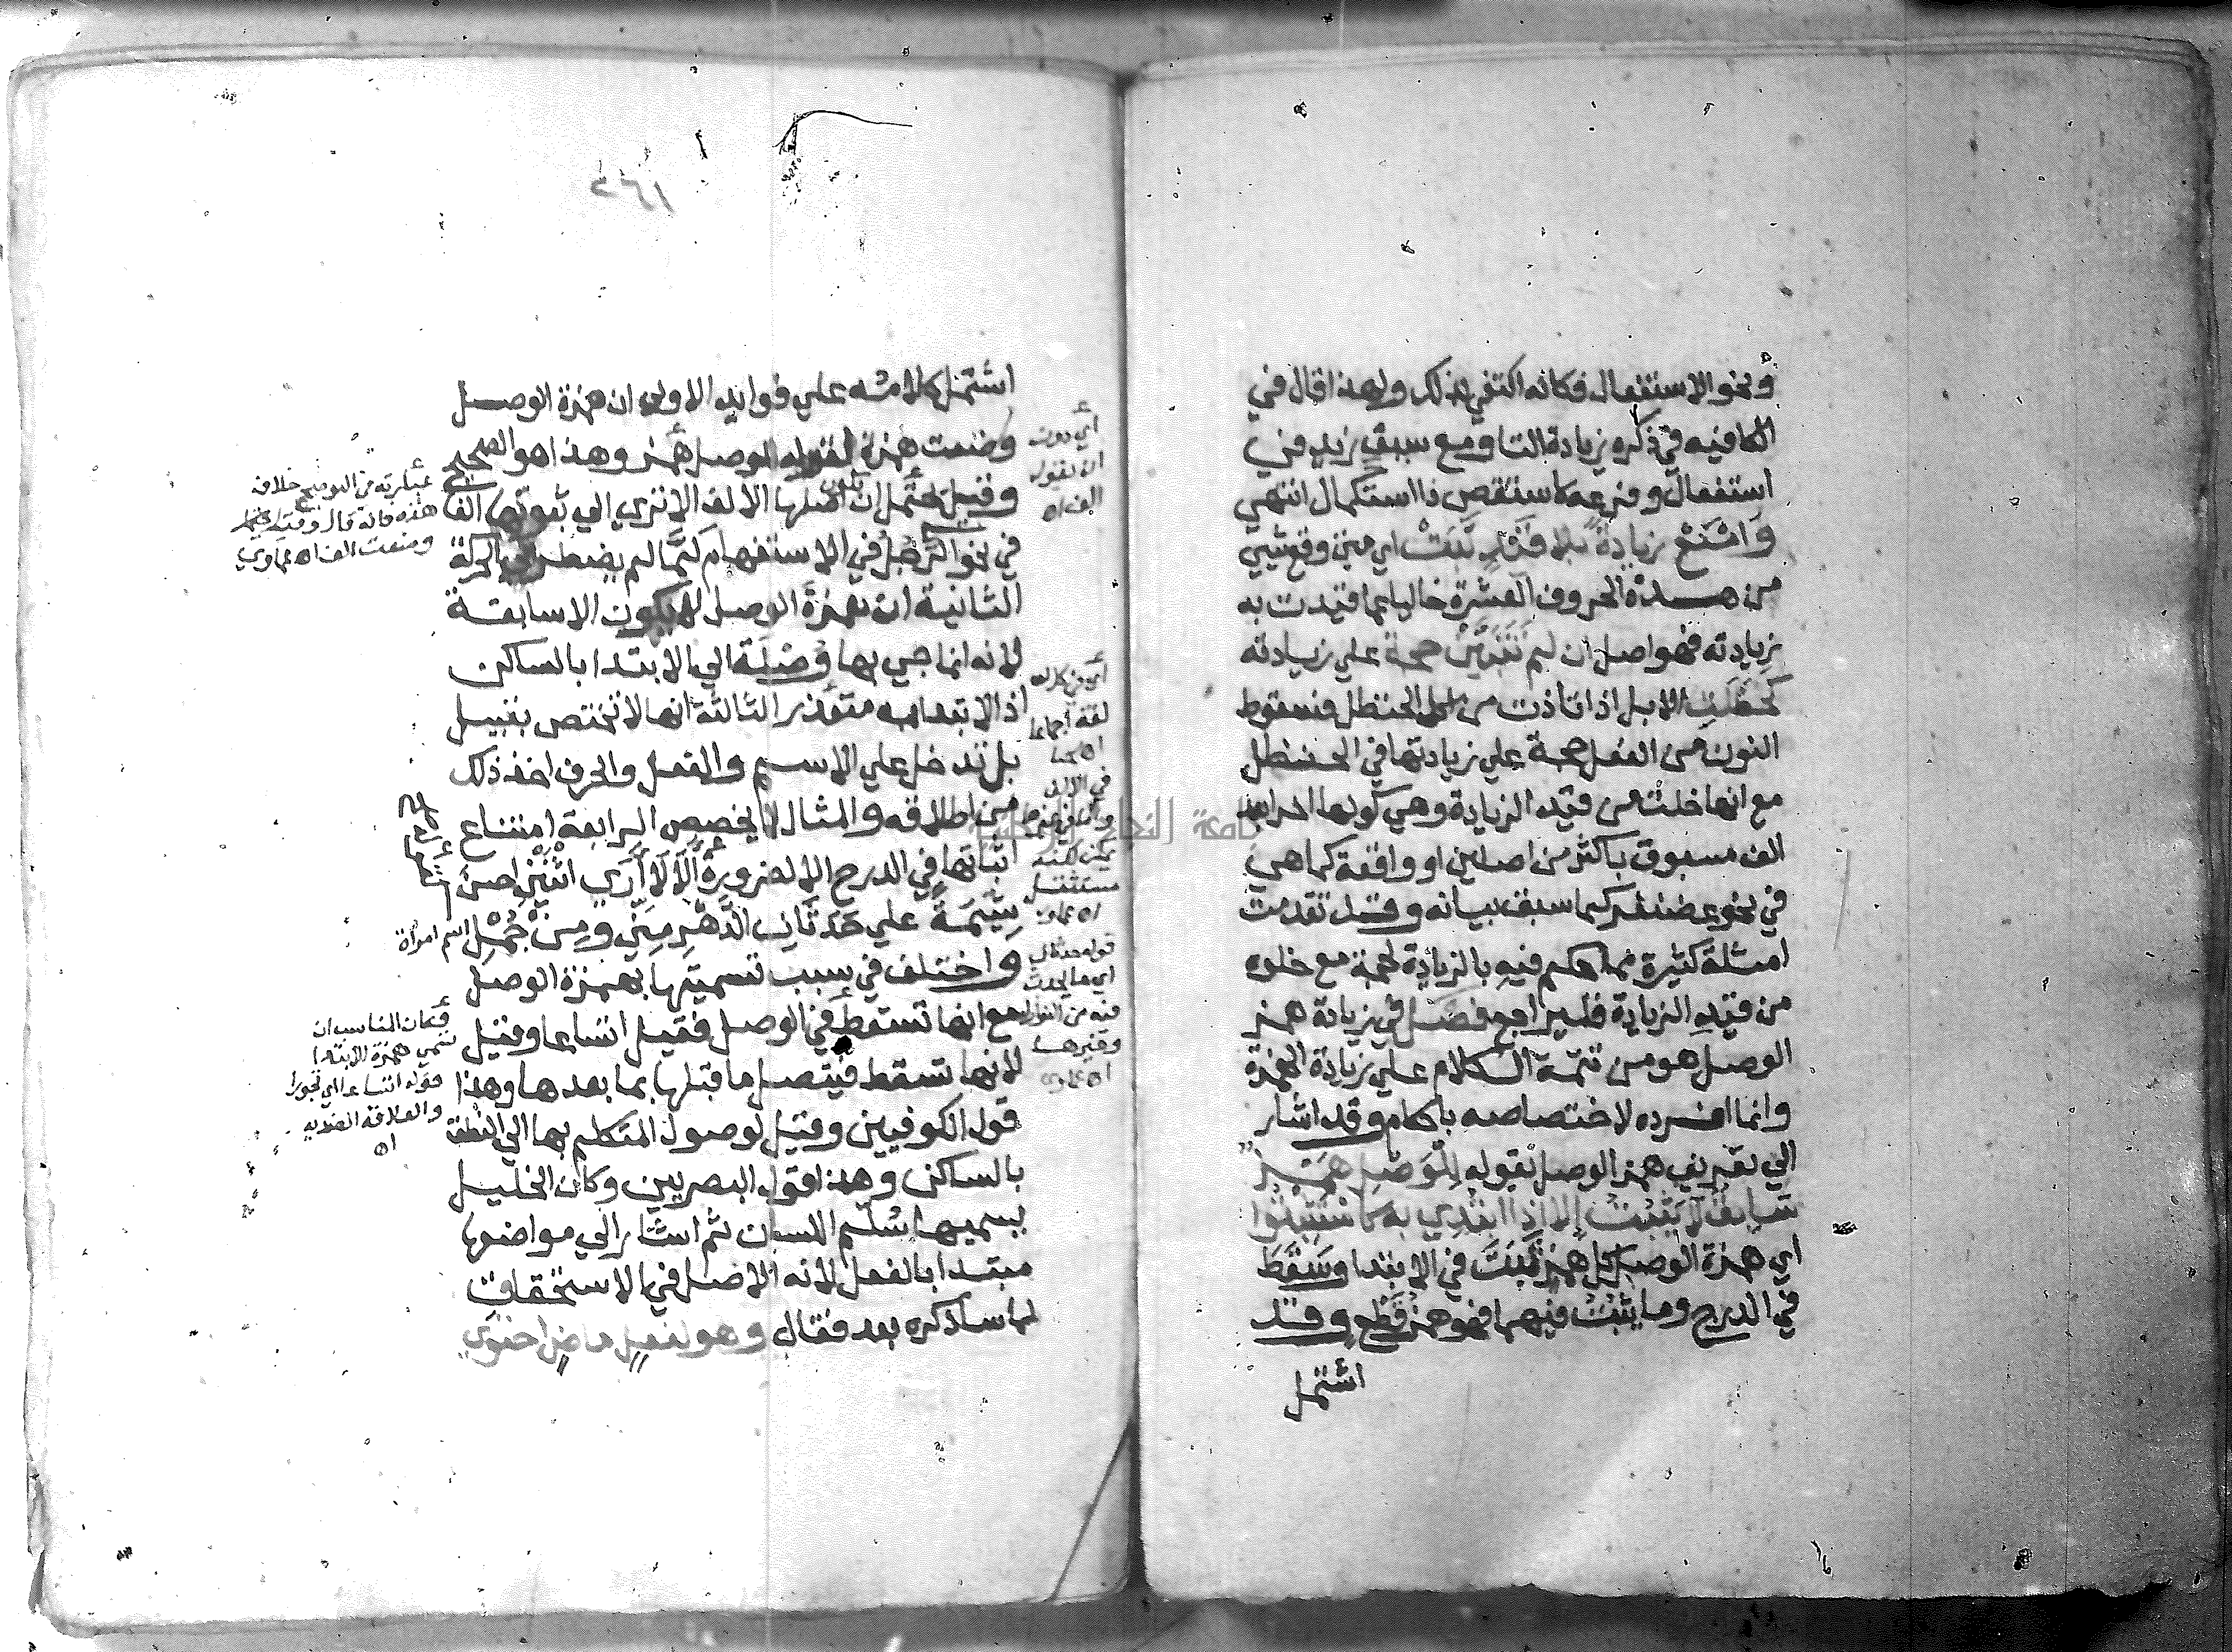 ونحو الاستفعال فكانه اكتفي بذلك ولهذا قال في
الكافيه في ذكره زيادة التا ومع سين زيد في
استفعال وفرعه كاستقص ذا استكمال انتهي
وَامْنَعْ زيادة بلا قَيْدٍ ثَبَتْ اي متي وقع شيي
من هـذه الحروف العشرة خاليا عما قيدت به
زيادته فهو اصل ان لم تَتَبَيَّنْ حجة علي زيادته
كَحَظَلَتِ الابل اذا تاذت من اكل الحنظل فسقوط
النون من الفعل حجة علي زيادتها في الحنظل
مع انها خلت من قيد الزيادة وهي كونها اخرا بعد
الف مسبوق باكثر من اصلين او واقعة كما هي
في نحو غضنفر كما سبق بيانه وقد تقدمت
امثلة كثيرة مما حكم فيه بالزيادة لحجة مع خلوه
من قيد الزيادة فليراجع فصل في زيادة همز
الوصل هو من تتمة الكلام علي زيادة الهمزة
وانما افرده لاختصاصه باحكام وقد اشار
الي تعريف همز الوصل بقوله لِلْوَصْلِ هَمْزٌ
سَابِقٌ لَا يَثْبُتُ إلا إذا ابتُدِي به كاستثبتوا
اي همزة الوصل كل همز ثَبَتَ في الابتدا وسَقَطَ
في الدرج وما يثبت فيهما فهو همز قَطْعٍ وقد
اشتمل
٢٦١
اشتمل كلامه علي فوايد الاولي ان همزة الوصل
وضعت همزة لقوله للوصل همز وهذا هو الصحيح
وقيل يحتمل ان اصلها الالف الا تري الي ثبوتها الفا
في نحو الرجل في الاستفهام لما لم يضطر الي الحركة
الثانية ان همزة الوصل لا تكون الا سابقة
لانه انما جي بها وُصْلَة الي الابتدا بالساكن
اذ الابتدا به متعذر الثالثة انها لا تختص بقبيل
بل تدخل علي الاسم والفعل والحرف اخذ ذلك
من اطلاقه والمثال لا يخصص الرابعة امتناع
اثباتها في الدرج الا لضرورة أَلَا لَا أَرَي اثْنَيْنِ احسن
شِيمَةً علي حَدَثَانِ الدَّهْرِ مِنِّي ومِنْ جُمْلِ
واختلف في سبب تسميتها بهمزة الوصل
مع انها تسقط في الوصل فقيل اتساعا وقيل
لانها تسقط فيتصل ما قبلها بما بعدها وهذا
قول الكوفيين وقيل لوصول المتكلم بها الي النطق
بالساكن وهذا قول البصريين وكان الخليل
يسميها سُلَّم اللسان ثم اشار الي مواضعها
مبتدا بالفعل لانه الاصل في الاستحقاق
لما ساذكره بعد فقال وهو لفعل ماض احتوي
عبارته في التوضيح خلاف
هذه فانه قال وقيل يحتمل
اسم امراة
فكان المناسب ان
تسمي همزة الابتدا
قوله اتساعا اي تجوزا
والعلاقة الضديه
اه
اي دون
ان يقول
الف اه
قوله حدثان
اي ما يحدث
وغيرها